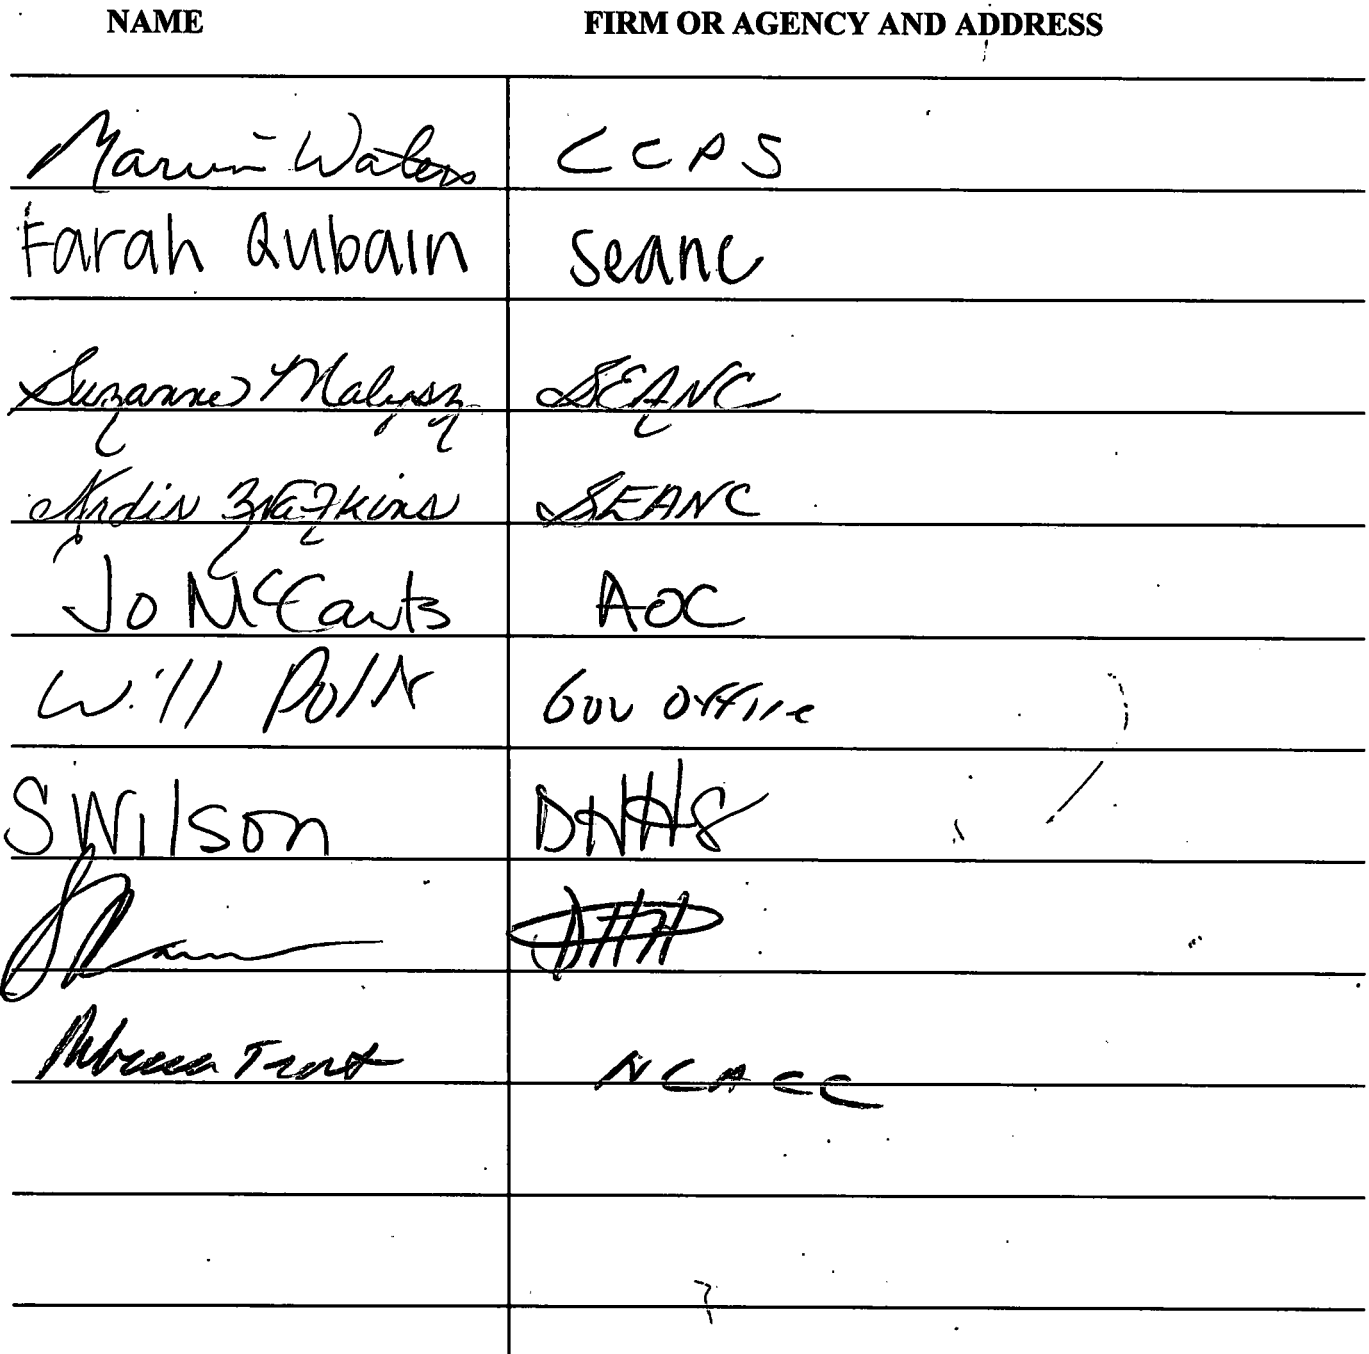 NAME FIRM OR AGENCY AND ADDRESS
Marvin Waters CCPS
Farah Qubain Seanc
Suzanne Malysz SEANC
Ardis Watkins SEANC
Jo McCants AOC
Will Polk Gov Office
S Wilson DHHS
DHH
Rebecca Troutt NCACC